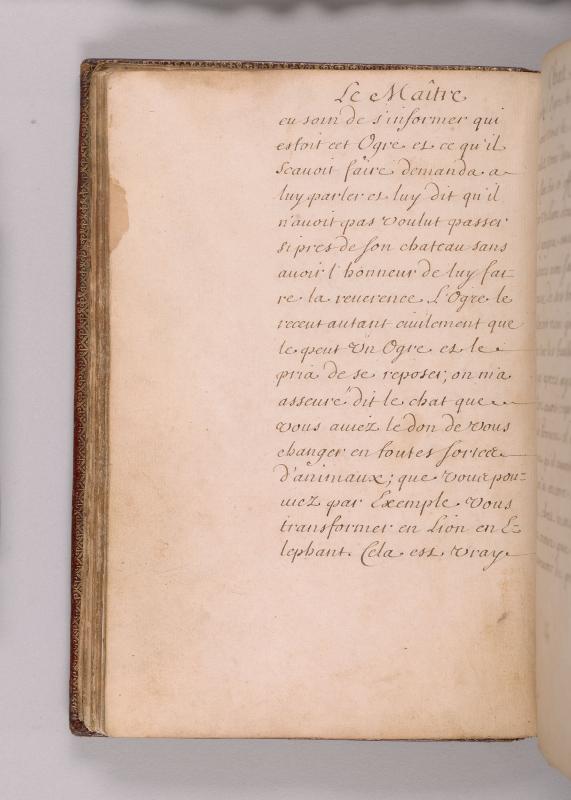 Le Maître
eu soin de s'informer qui
estoit cet Ogre et ce qu'il
scauoit faire demanda a
luy parler et luy dit qu'il
n'auoit pas voulut passer
si pres de son chateau sans
auoir l'honneur de luy fai
re la reuerence L'Ogre le
receut autant ciuilement que
le peut Un Ogre et le
pria de se reposer; on m'a
asseuré dit le chat que
vous auiez le don de vous
changer en toutes sortes
d'animaux; que vous pou=
uiez par Exemple vous
transformer en Lion en E=
lephant. Cela est vray